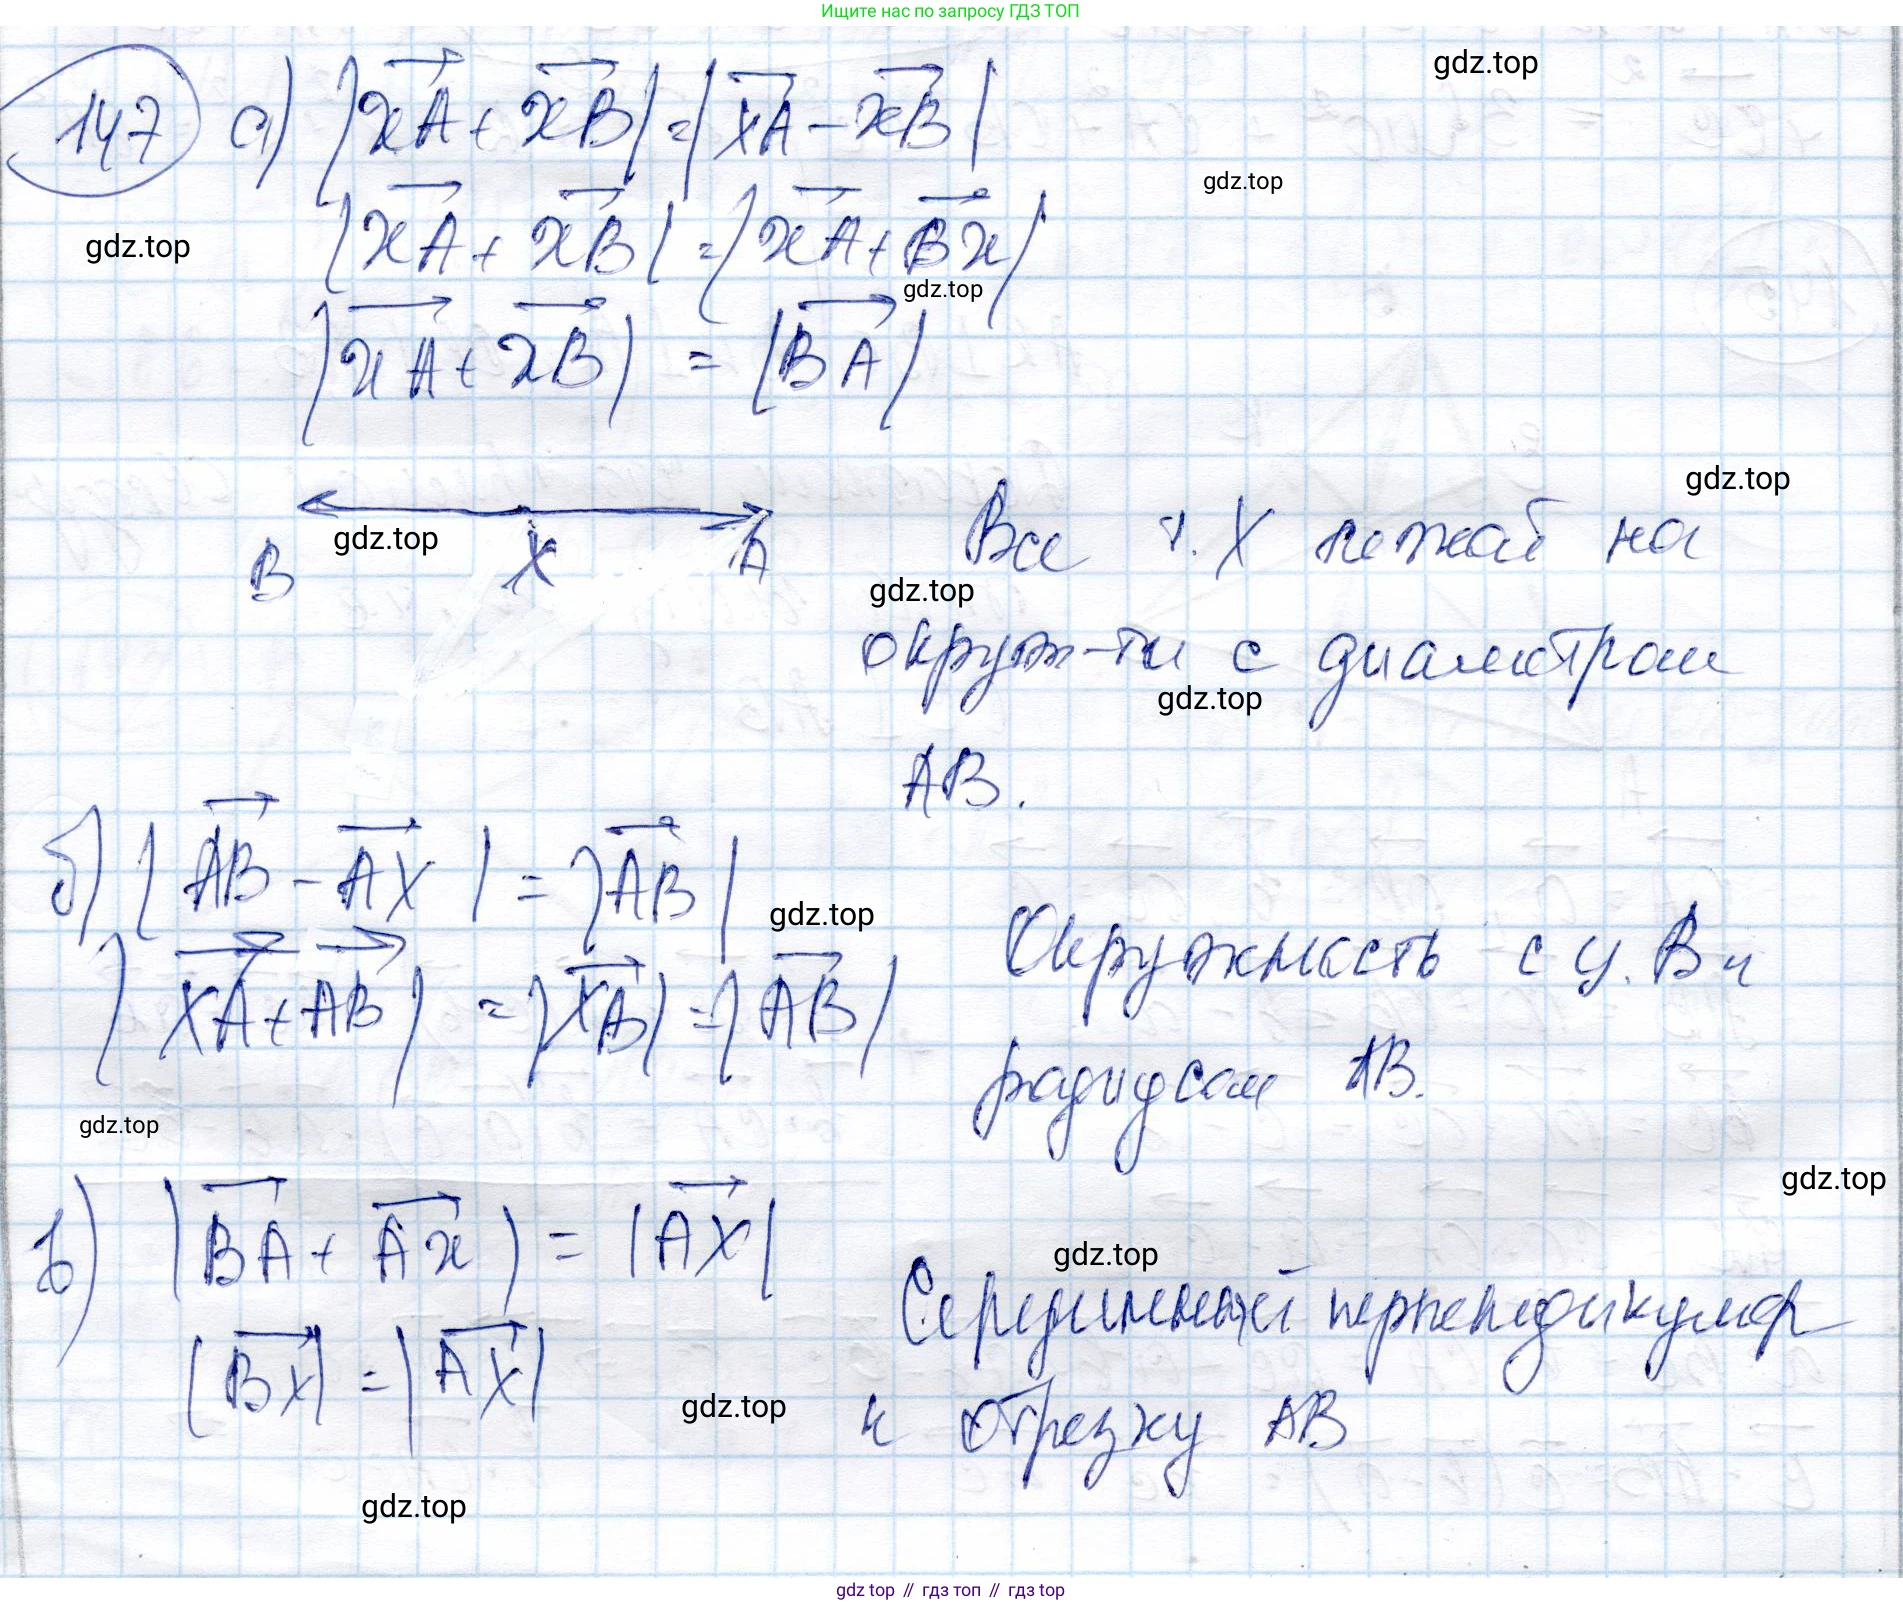 Ищите нас по запросу ГДЗ ТОП
147 а) |xA + xB| = |XA - xB|
gdz.top
|xA + xB| = |xA + Bx|
gdz.top
gdz.top
gdz.top
|xA + xB| = |BA|
B X A
gdz.top
gdz.top
Все т. X лежат на
gdz.top
окруж-ти с диаметром
gdz.top
AB.
б) |AB - AX| = |AB|
gdz.top
|XA + AB| = |XB| = |AB|
Окружность с ц. B и
радиусом AB.
gdz.top
gdz.top
в) |BA + Ax| = |AX|
gdz.top
Серединный перпендикуляр
|BX| = |AX|
gdz.top
к отрезку AB
gdz.top
gdz.top // гдз топ // гдз top